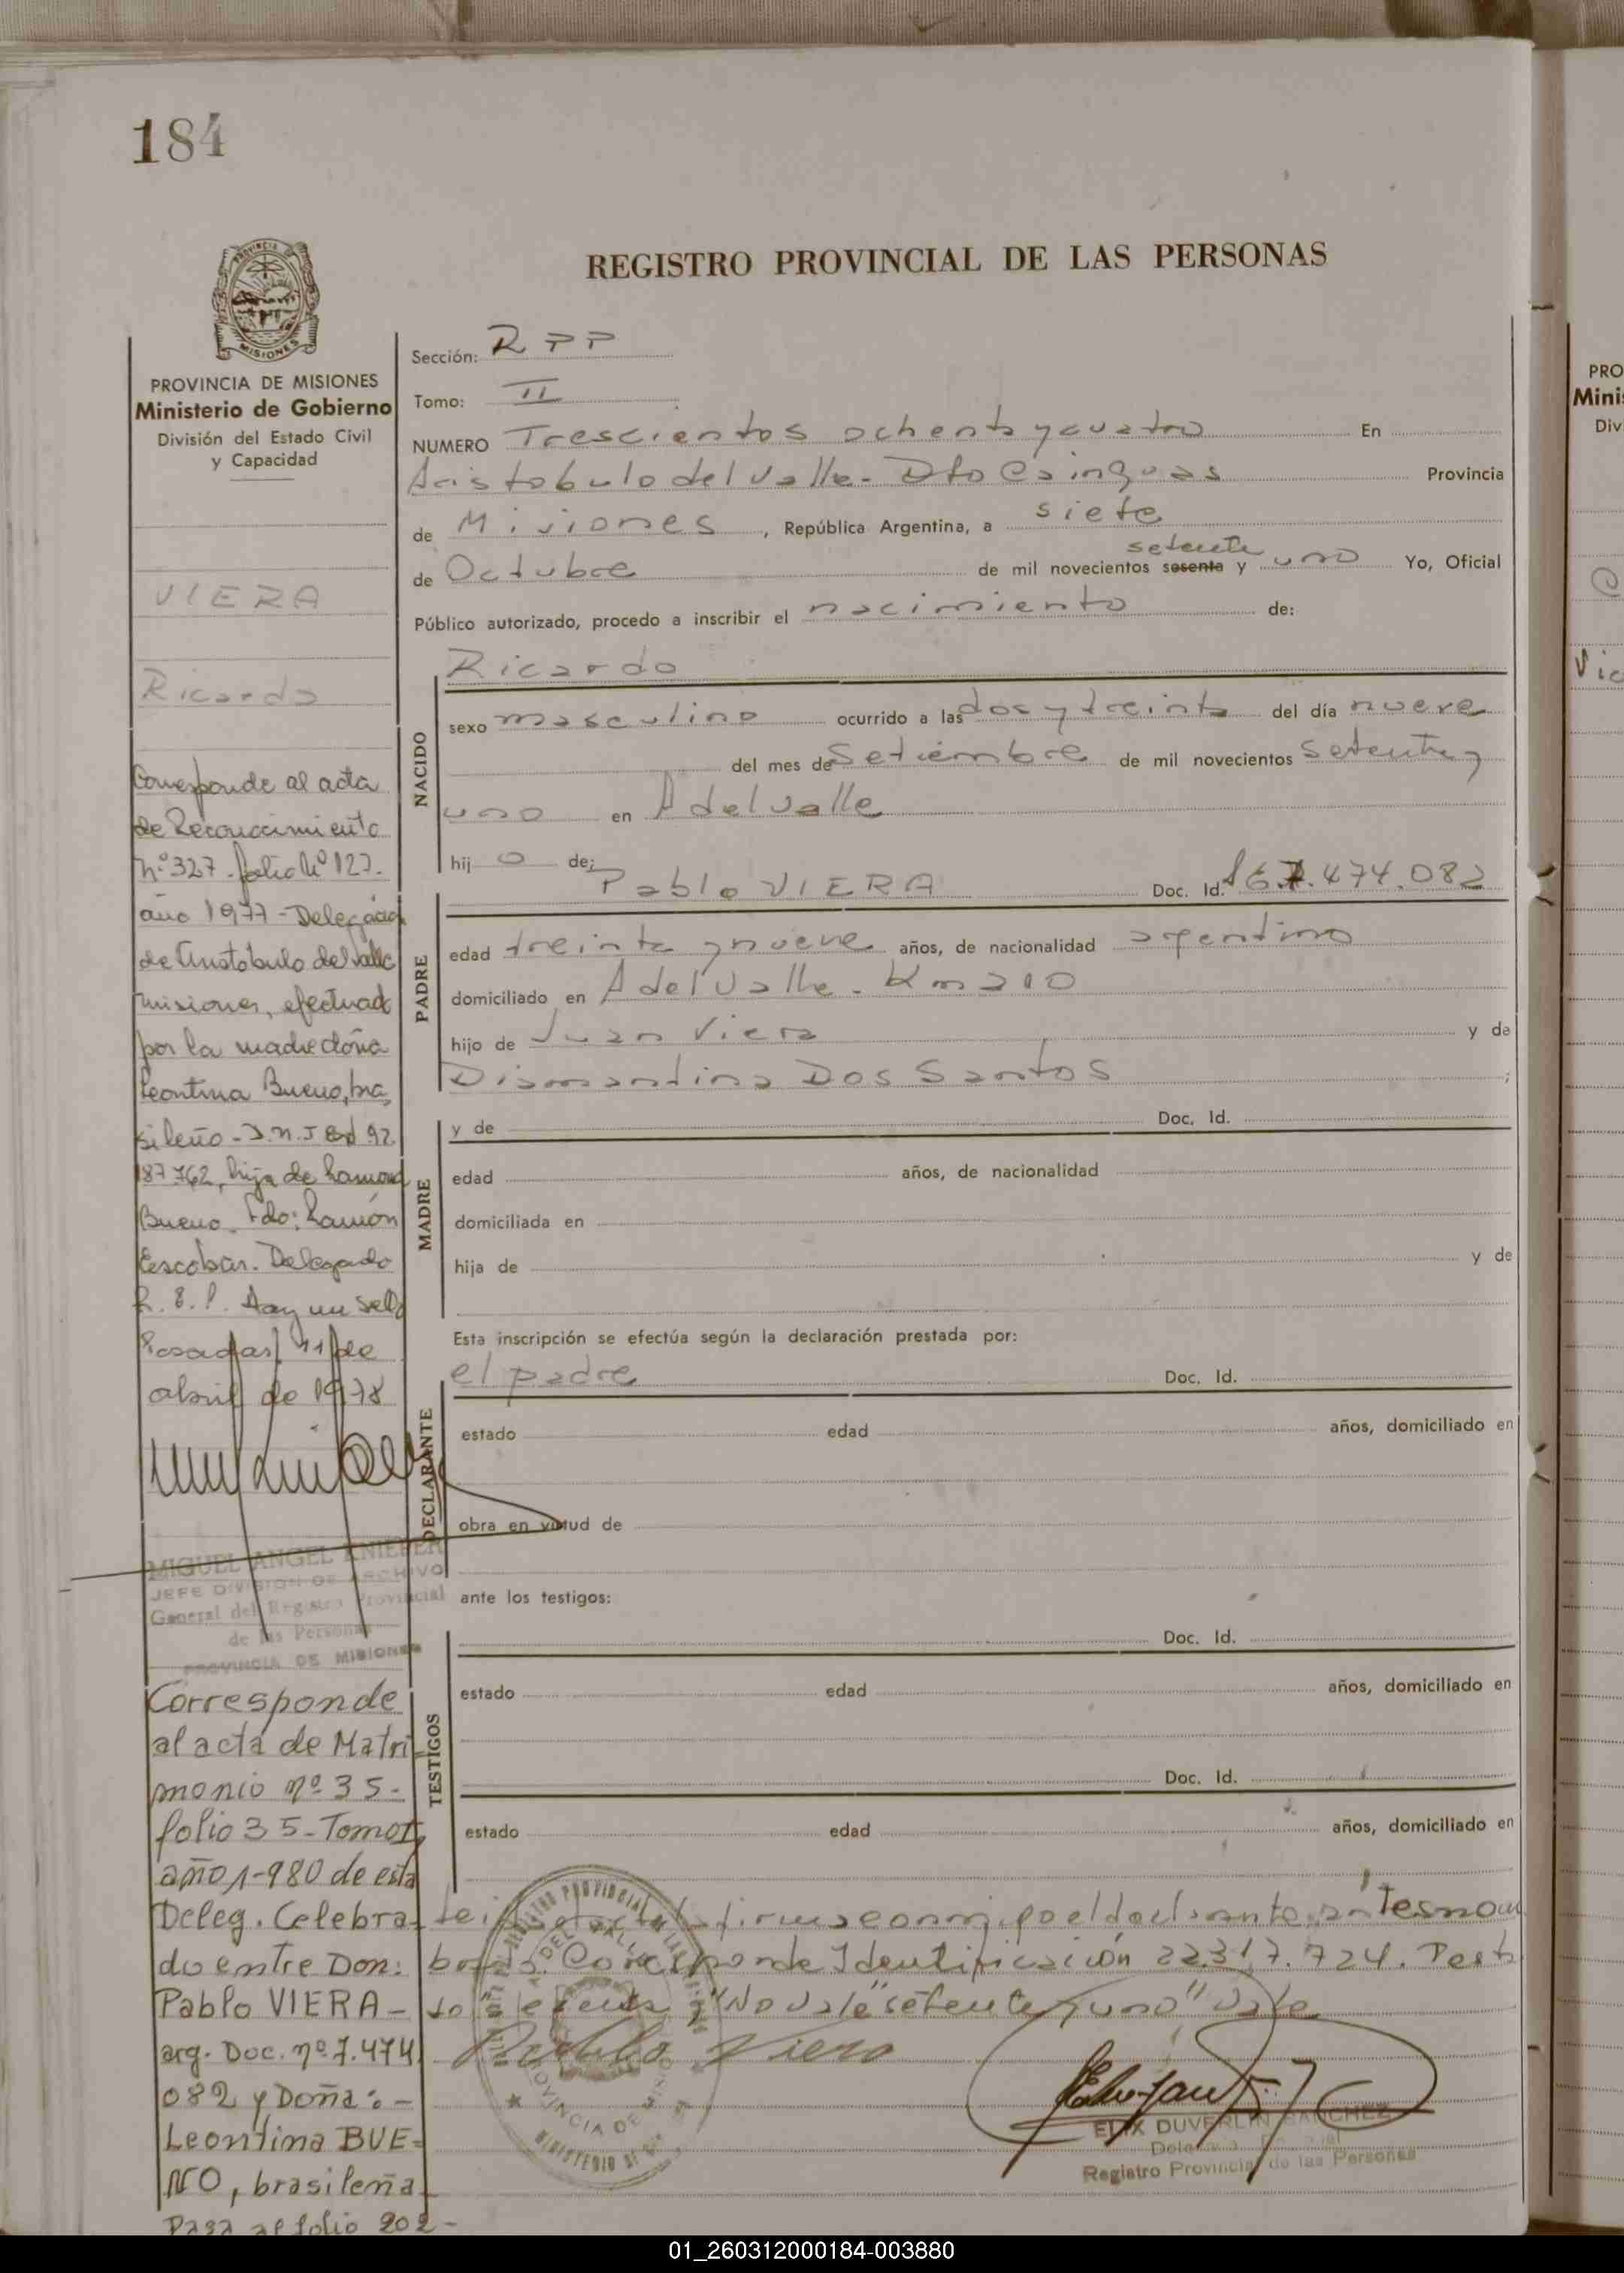 184
REGISTRO PROVINCIAL DE LAS PERSONAS
PROVINCIA
MISIONES
PROVINCIA DE MISIONES
Ministerio de Gobierno
División del Estado Civil
y Capacidad
VIERA
Ricardo
Corresponde al acta
de Reconocimiento
Nº 327 - folio Nº 127.
año 1977 - Delegación
de Aristóbulo del Valle
Misiones, efectuad
por la madre doña
Leontina Bueno, bra
sileño - D.N.I. 92.
187.762, hija de
Bueno. Fdo: Ramón
Escobar. Delegado
Hay un sello
Posadas, 11 de
abril de 1978
MIGUEL ANGEL KNIEPER
JEFE DIVISION DE ARCHIVO
General del Registro Provincial
de las Personas
PROVINCIA DE MISIONES
Corresponde
al acta de Matri
monio nº 35-
folio 35-Tomo I,
año 1-980 de esta
Deleg. Celebra
do entre Don:
Pablo VIERA -
arg. Doc. nº 7.474
082 y Doña: -
Leontina BUE=
NO, brasileña
Pasa al folio 202-
Sección: RPP
Tomo: II
NUMERO Trescientos ochenta y cuatro En
Aristobulo del Valle - Dto Cainguas Provincia
de Misiones, República Argentina, a siete
setenta
de Octubre de mil novecientos sesenta y uno Yo, Oficial
Público autorizado, procedo a inscribir el nacimiento de:
NACIDO
Ricardo
sexo masculino ocurrido a las dos y treinta del día nueve
del mes de Setiembre de mil novecientos setenta y
uno en A del Valle
hij o de:
PADRE
Pablo VIERA Doc. Id. 7.474.082
edad treinta y nueve años, de nacionalidad argentino
domiciliado en A del Valle - Km 210
hijo de Juan Viera y de
Diamandina Dos Santos ;
MADRE
y de Doc. Id.
edad años, de nacionalidad
domiciliada en
hija de y de
Esta inscripción se efectúa según la declaración prestada por:
DECLARANTE
el padre Doc. Id.
estado edad años, domiciliado en
obra en virtud de
ante los testigos:
TESTIGOS
Doc. Id.
estado edad años, domiciliado en
Doc. Id.
estado edad años, domiciliado en
firma conmigo el declarante
Corresponde Identificación 22.317.724. Testa
do "sesenta y" No vale "setenta y uno" vale
Pablo Viera
REGISTRO PROVINCIAL DE LAS PERSONAS
DEL VALLE
PROVINCIA DE MISIONES
MINISTERIO DE
DUVERLIN SANCHEZ
Registro Provincial de las Personas
PRO
Minis
Div
Vic
01_260312000184-003880